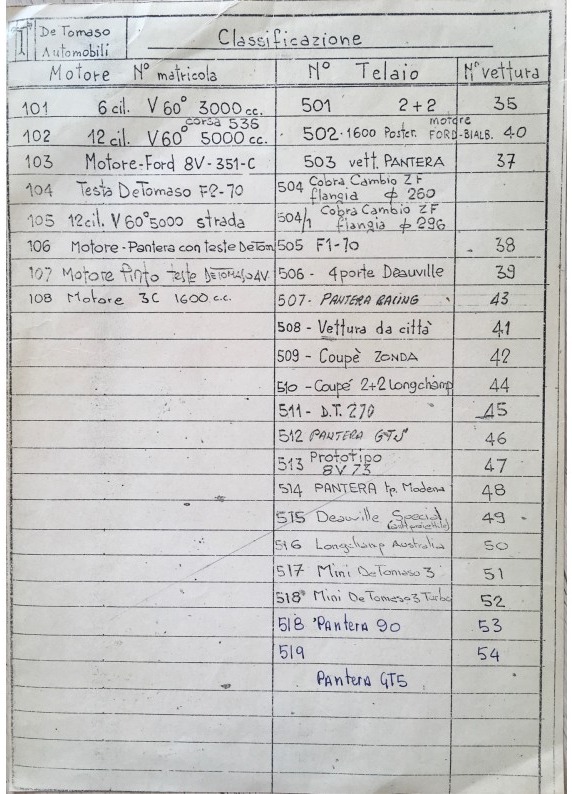 De Tomaso
Automobili
Classificazione
Motore Nº matricola
Nº Telaio
Nº vettura
101 6 cil. V 60° 3000 cc.
501 2+2
35
corsa 536
102 12 cil. V60° 5000 cc.
motore
502-1600 Poster. FORD-BIALB.
40
103 Motore-Ford 8V-351-C
503 vett. PANTERA
37
104 Testa DeTomaso F2-70
504 Cobra Cambio ZF
flangia ϕ 260
105 12cil. V 60° 5000 strada
504/1 Cobra Cambio ZF
flangia ϕ 296
106 Motore-Pantera con teste DeTom
505 F1-70
38
107 Motore Pinto teste DETOMASO 4V
506 - 4 porte Deauville
39
108 Motore 3C 1600 c.c.
507- PANTERA RACING
43
508 - Vettura da città
41
509 - Coupè ZONDA
42
510 - Coupé 2+2 Longchamp
44
511- D.T. 270
45
512 PANTERA GTS
46
513 Prototipo
8V 73
47
514 PANTERA tp. Modena
48
515 Deauville Special
49
516 Longchamp Australia
50
517 Mini DeTomaso 3
51
518 Mini DeTomaso 3 Turbo
52
518 Pantera 90
53
519
54
Pantera GT5